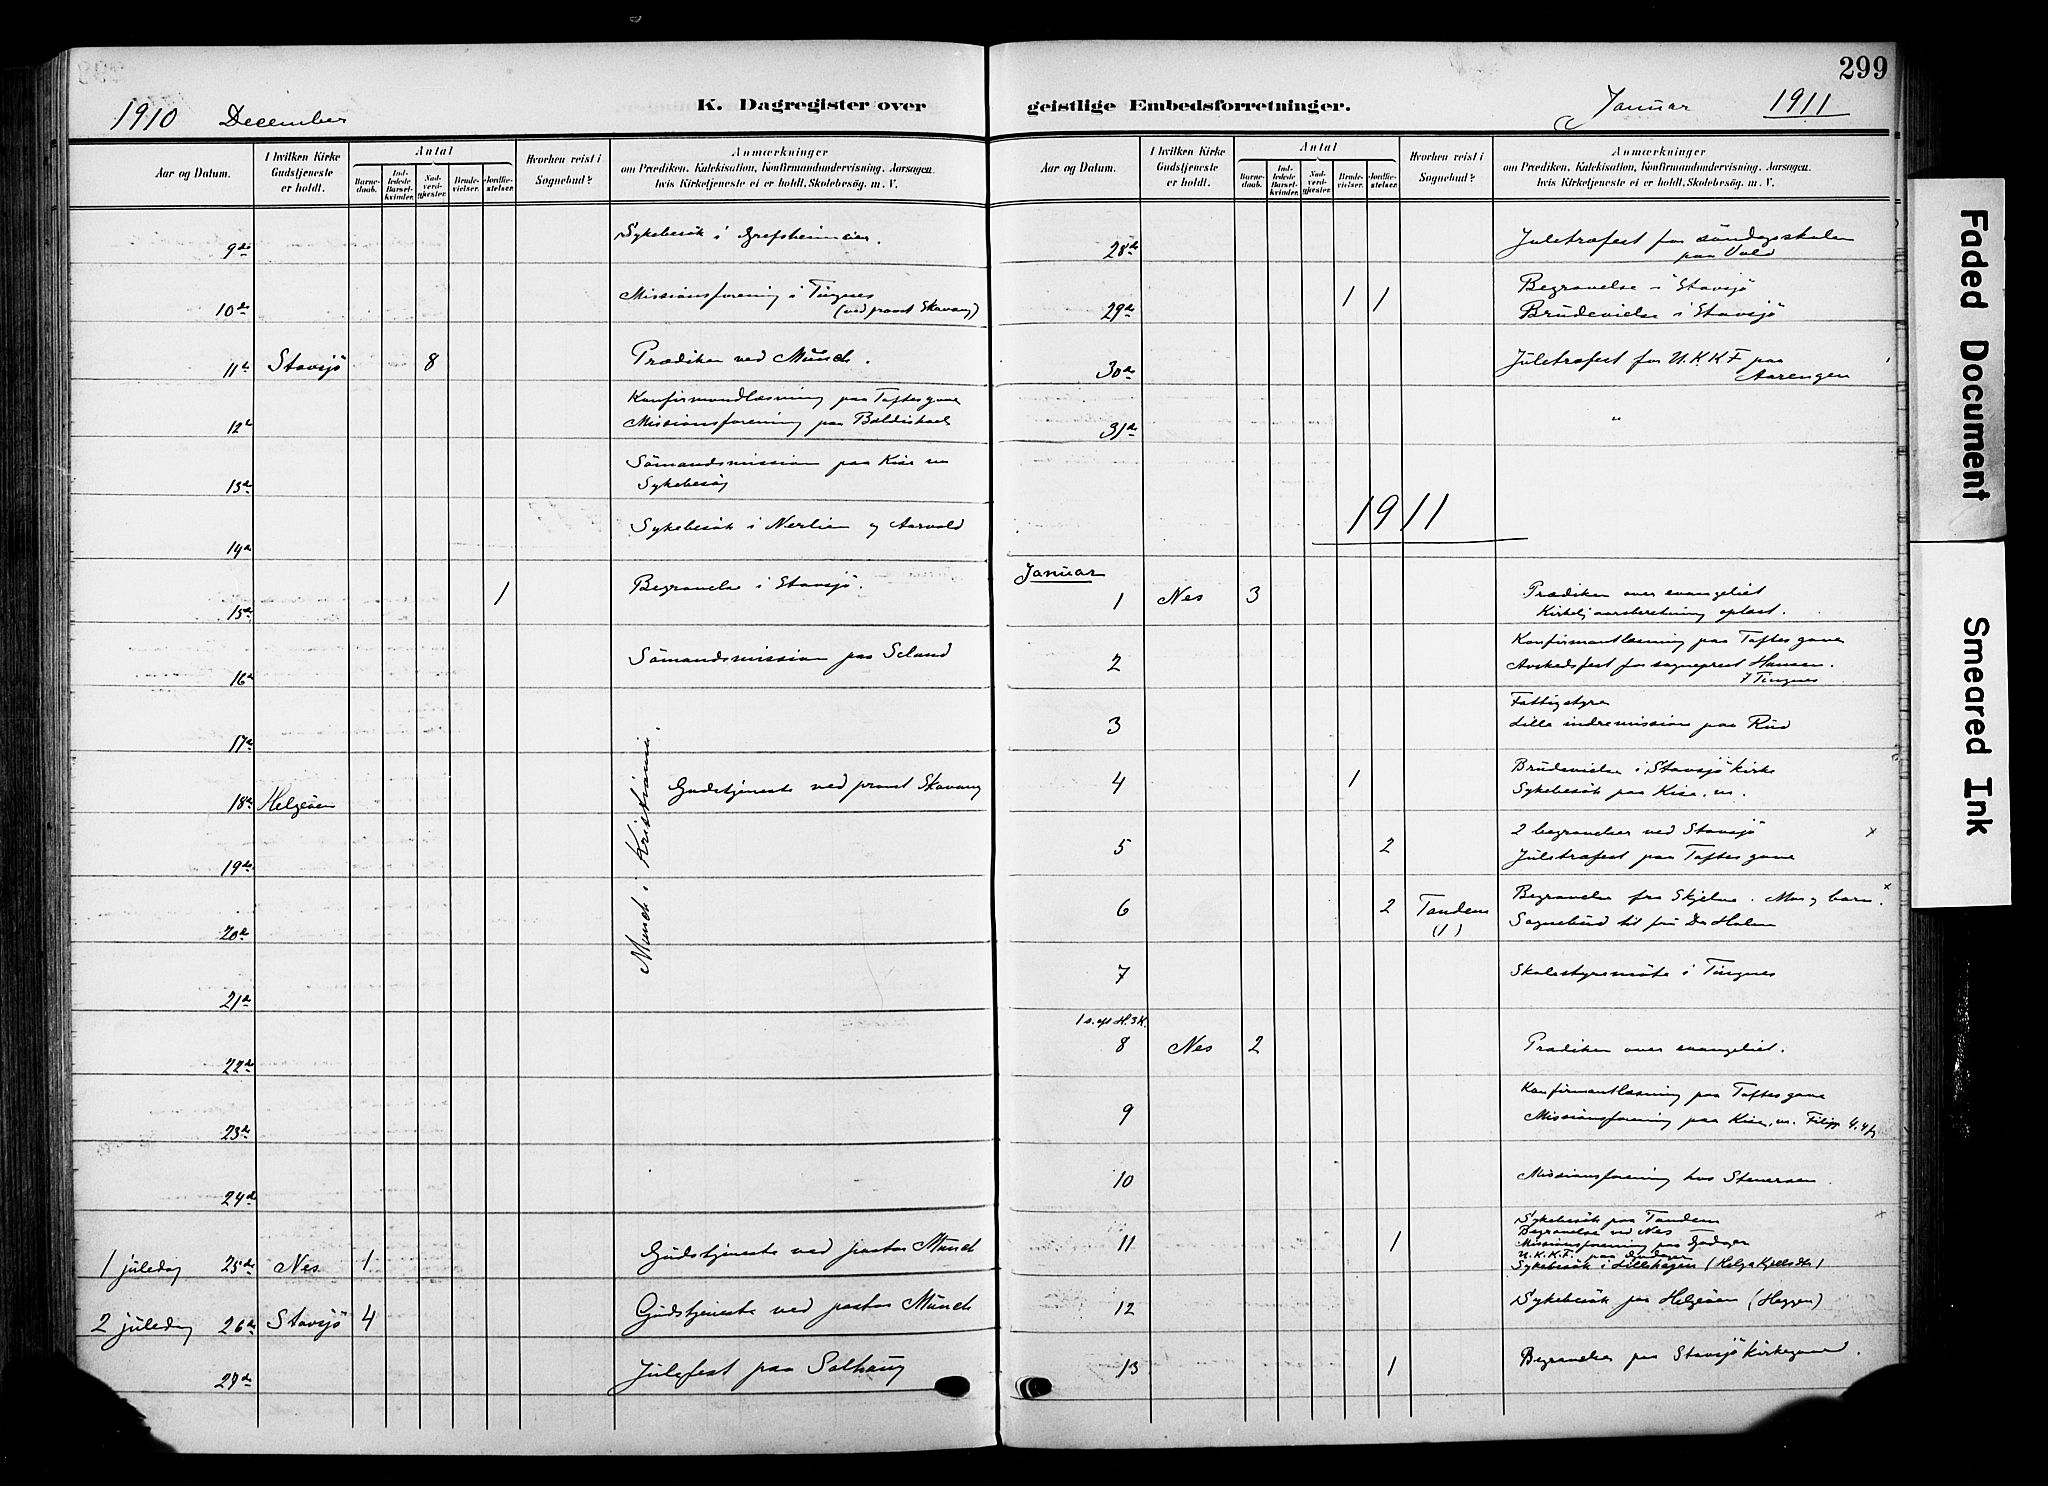 299
1910 December
K. Dagregister over
Aar og Datum.
I hvilken Kirke Gudstjeneste er holdt.
Antal
Barnedaab.
Indledede Barselkvinder.
Nadverdgjester.
Brudevielser.
Jordfæstelser.
Hvorhen reist i Sognebud?
Anmærkninger
om Prædiken, Katekisation, Konfirmandundervisning, Aarsagen,
hvis Kirketjeneste ei er holdt, Skolebesøg, m. V.
9de Sykebesök i Grefsheimeie.
10de Missionsforening i Tingnes
(ved provst Skavang)
11te Stavsjö 8 Prædiken ved Munch.
Konfirmandlæsning paa Toftes gave
12te Missionsforening paa Baldishool
Sömandsmission paa Kise m
13de Sykebesög
14de Sykebesök i Nerlien og Aarvold
15de 1 Begravelse i Stavsjö.
16de Sömandsmission paa Seland
17de
18de Helgöen Gudstjeneste ved provst Skavang
Munch i Kristiania.
19de
20de
21de
22de
23de
24de
1 juledag 25de Nes 1 Gudstjeneste ved pastor Munch
2 juledag 26de Stavsjö 4 Gudstjeneste ved pastor Munch
27de Julefest paa Solhaug
geistlige Embedsforretninger.
Januar 1911
Aar og Datum.
I hvilken Kirke Gudstjeneste er holdt.
Antal
Barnedaab.
Indledede Barselkvinder.
Nadverdgjester.
Brudevielser.
Jordfæstelser.
Hvorhen reist i Sognebud?
Anmærkninger
om Prædiken, Katekisation, Konfirmandundervisning, Aarsagen,
hvis Kirketjeneste ei er holdt, Skolebesøg, m. V.
28de Juletræfest for söndagsskolen
paa Vold
29de 1 1 Begravelse i Stavsjö
Brudevielse i Stavsjö
30de Juletræfest for U.K.K.F paa
Aarengen
31de "
1911
Januar
1 Nes 3 Prædiken over evangeliet
Kirkelj aarsberetning oplæst.
2 Konfirmantlæsning paa Toftes gave
Avskedsfest for sogneprest Hansen.
i Tingnes
3 Fattigstyre
Lille indremission paa Rud
4 1 Brudevielse i Stavsjö kirke
Sykebesök paa Kise, m.
5 2 2 begravelser ved Stavsjö x
Juletræfest paa Toftes gave
6 2 Tandem (1) Begravelse fra Skjelve. Mor og barn. x
Sognebud til fru Dr Holm
7 Skolestyremöte i Tingnes
1 s. ef H.3K.
8 Nes 2 Prædiken over evangeliet.
9 Konfirmantlæsning paa Toftes gave
Missionsforening paa Kise, m. Filipp 4.4f
10 Missionsforening hos Stenersen.
11 1 Sykebesök paa Tandem x
Begravelse ved Nes
Missionsforening paa
U.K.K.F. paa
Sykebesök i Lillehagen
12 Sykebesök paa Helgöen (Heggen)
13 1 Begravelse paa Stavsjö kirkegaard.
Faded Document
Smeared Ink